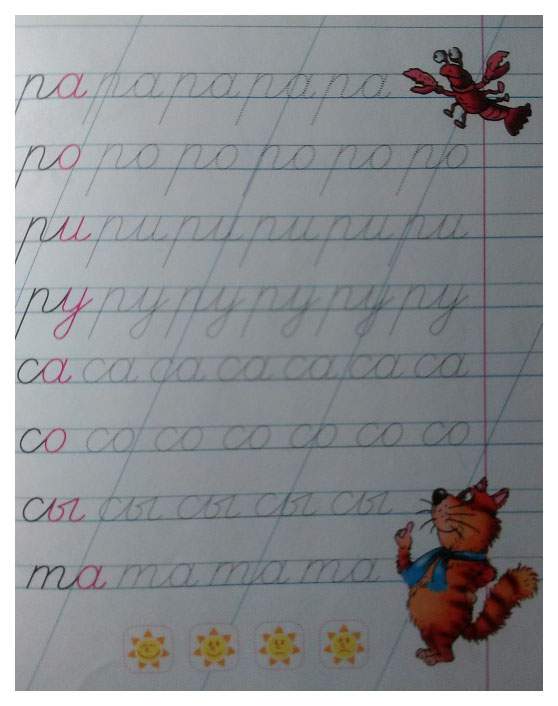 ра ра ра ра ра
ро ро ро ро ро ро
ри ри ри ри ри ри
ру ру ру ру ру ру
са са са са са са са
со со со со со со со
сы сы сы сы сы
та та та та